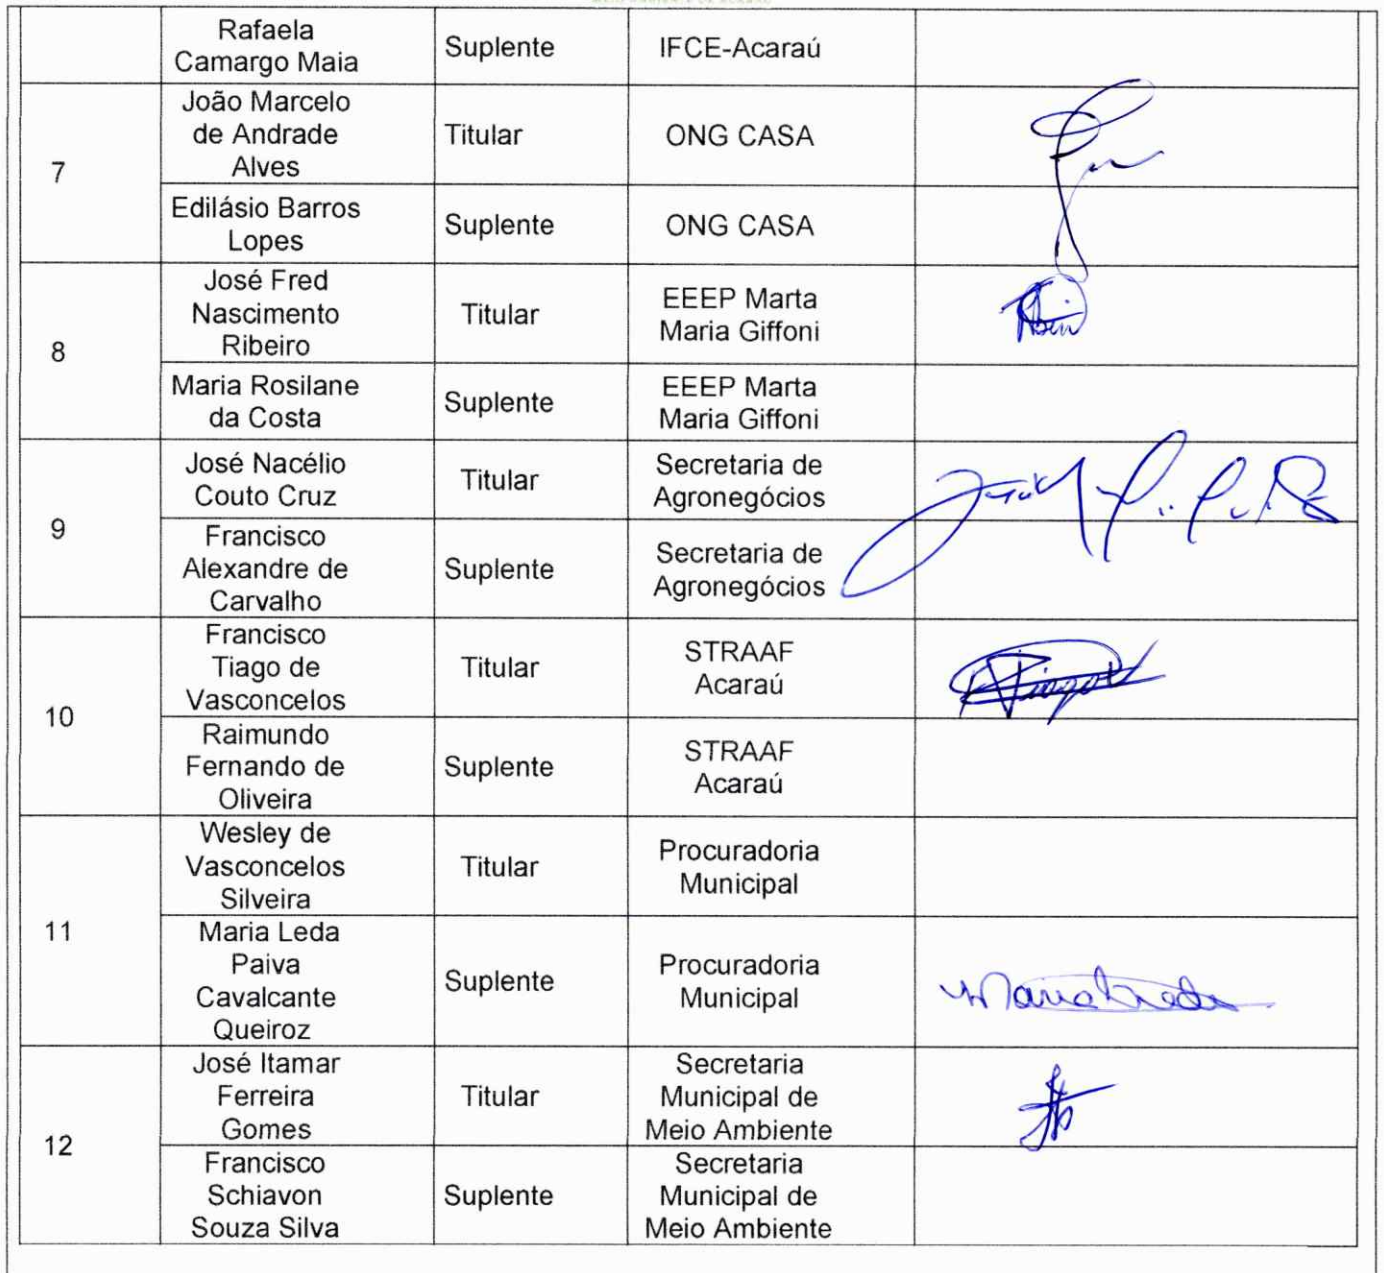 Rafaela
Camargo Maia
Suplente
IFCE-Acaraú
7
João Marcelo
de Andrade
Alves
Titular
ONG CASA
Edilásio Barros
Lopes
Suplente
ONG CASA
8
José Fred
Nascimento
Ribeiro
Titular
EEEP Marta
Maria Giffoni
Maria Rosilane
da Costa
Suplente
EEEP Marta
Maria Giffoni
9
José Nacélio
Couto Cruz
Titular
Secretaria de
Agronegócios
Francisco
Alexandre de
Carvalho
Suplente
Secretaria de
Agronegócios
10
Francisco
Tiago de
Vasconcelos
Titular
STRAAF
Acaraú
Raimundo
Fernando de
Oliveira
Suplente
STRAAF
Acaraú
11
Wesley de
Vasconcelos
Silveira
Titular
Procuradoria
Municipal
Maria Leda
Paiva
Cavalcante
Queiroz
Suplente
Procuradoria
Municipal
Maria Leda
12
José Itamar
Ferreira
Gomes
Titular
Secretaria
Municipal de
Meio Ambiente
Francisco
Schiavon
Souza Silva
Suplente
Secretaria
Municipal de
Meio Ambiente